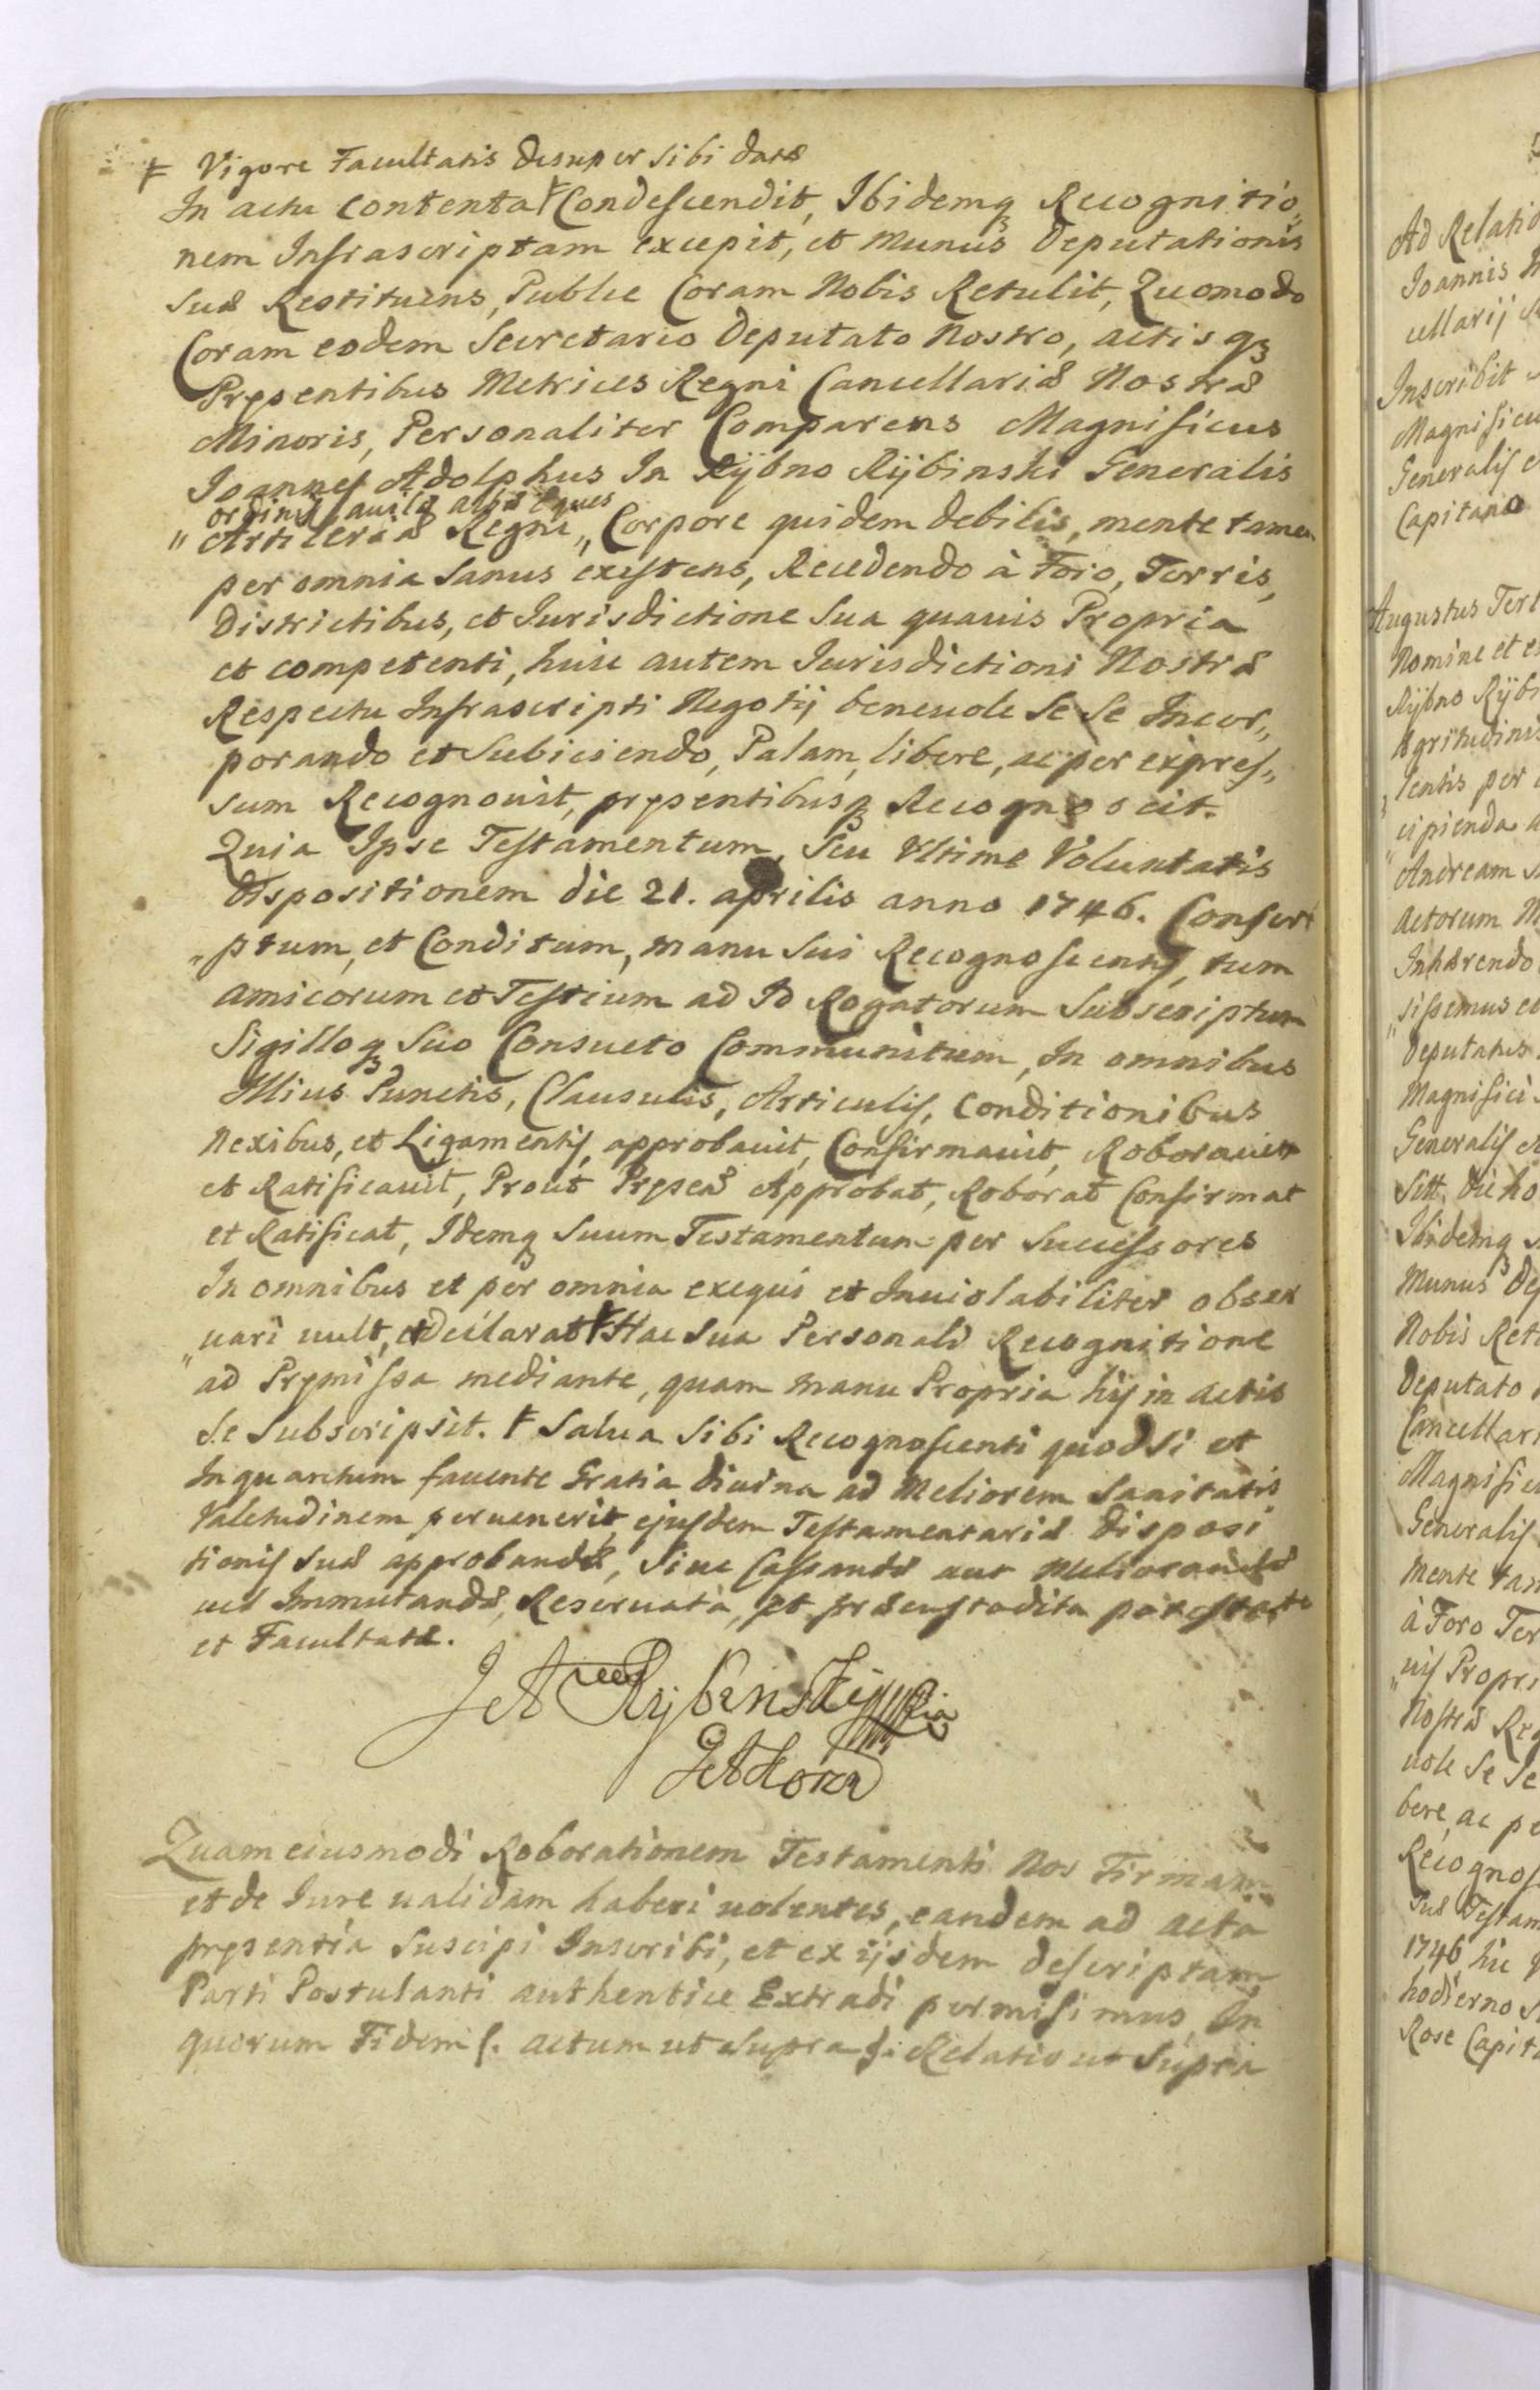 Ꞙ Vigore Facultatis desuper sibi datæ
In actu contenta Ꞙ Condescendit, Ibidemq̨ Recognitio„
nem Infrascriptam excepit, et munus Deputationis
suæ Restituens, Publice Coram Nobis Retulit, Quomodo
Coram eodem Secretario Deputato Nostro, actisq̨
Pręsentibus Metrices Regni Cancellariæ Nostræ
Minoris, Personaliter Comparens Magnificus
Joannes Adolphus In Rÿbno Rÿbinski Generalis
ordinis aquilæ albæ Eques
„ Artileriæ Regni „ Corpore quidem debilis, mente tamen
per omnia sanus existens, Recedendo à Foro, Terris,
Districtibus, et Jurisdictione sua quauis Propria
et competenti, huic autem Jurisdictioni Nostræ
Respectu Infrascripti Negotij beneuole se se Incor„
porando et subiciendo, Palam, libere, ac per expres„
sum Recognouit, pręsentibusq̨ Recognoscit.
Quia Ipse Testamentum, seu Vltimæ Voluntatis
dispositionem die 21. aprilis anno 1746. Conscri
„ptum, et Conditum, manu sui Recognoscentis, tum
amicorum et Testium ad Id Rogatorum subscriptum
Sigilloq̨ suo Consueto Communitum, In omnibus
Illius Punctis, Clausulis, Articulis, Conditionibus
Nexibus, et Ligamentis, approbauit, Confirmauit, Roborauit
et Ratificauit, Prout Approbat, Roborat Confirmat
et Ratificat, Idemq̨ suum Testamentum per successores
In omnibus et per omnia exequi et Inuiolabiliter obser
„uari uult, et declarat Ꞙ Hac sua Personali Recognitione
ad Pręmissa mediante, quam manu Propria hij in actis
se subscripsit. Ꞙ Salua sibi Recognoscenti quod si et
Inquantum fauente Gratia diuina ad Meliorem Sanitatis
Valetudinem peruenerit, ejusdem Testamentariæ disposi
tionis suæ approbandæ, siue Cassandæ aut Meliorandæ
uel Immutandæ, Reseruata, et præcustodita potestate
et Facultate.
Rÿbinski
Quam eiusmodi Roborationem Testamenti Nos Firmam
et de Iure ualidam haberi uolentes, eandem ad acta
pręsentia suscipi Inscribi, et ex ijsdem descriptam
Parti Postulanti authentice Extradi permisimus In
quorum Fidem ſ. actum ut supra ſ: Relatio ut supra
Ad Relatio
Joannis
cellarij
Inscribit
Magnificu
Generalis
Capitane
Augustus Tert
Nomine et
Rÿbno Rÿb
Ægritudinis
lentis per
cipienda
Andream
actorum
Inhærendo
sissemus
Deputatus
Magnifici
Generalis
Sitt, die ho
Ibidemq̨
Munus de
Nobis Ret
Deputato
Cancellari
Magnifi
Generalis
mente tam
à Foro Ter
uis Propri
Nostræ Re
uole se se
bere, ac pe
Recognos
suæ Testam
1746 hic
hodierno
Rose Capit